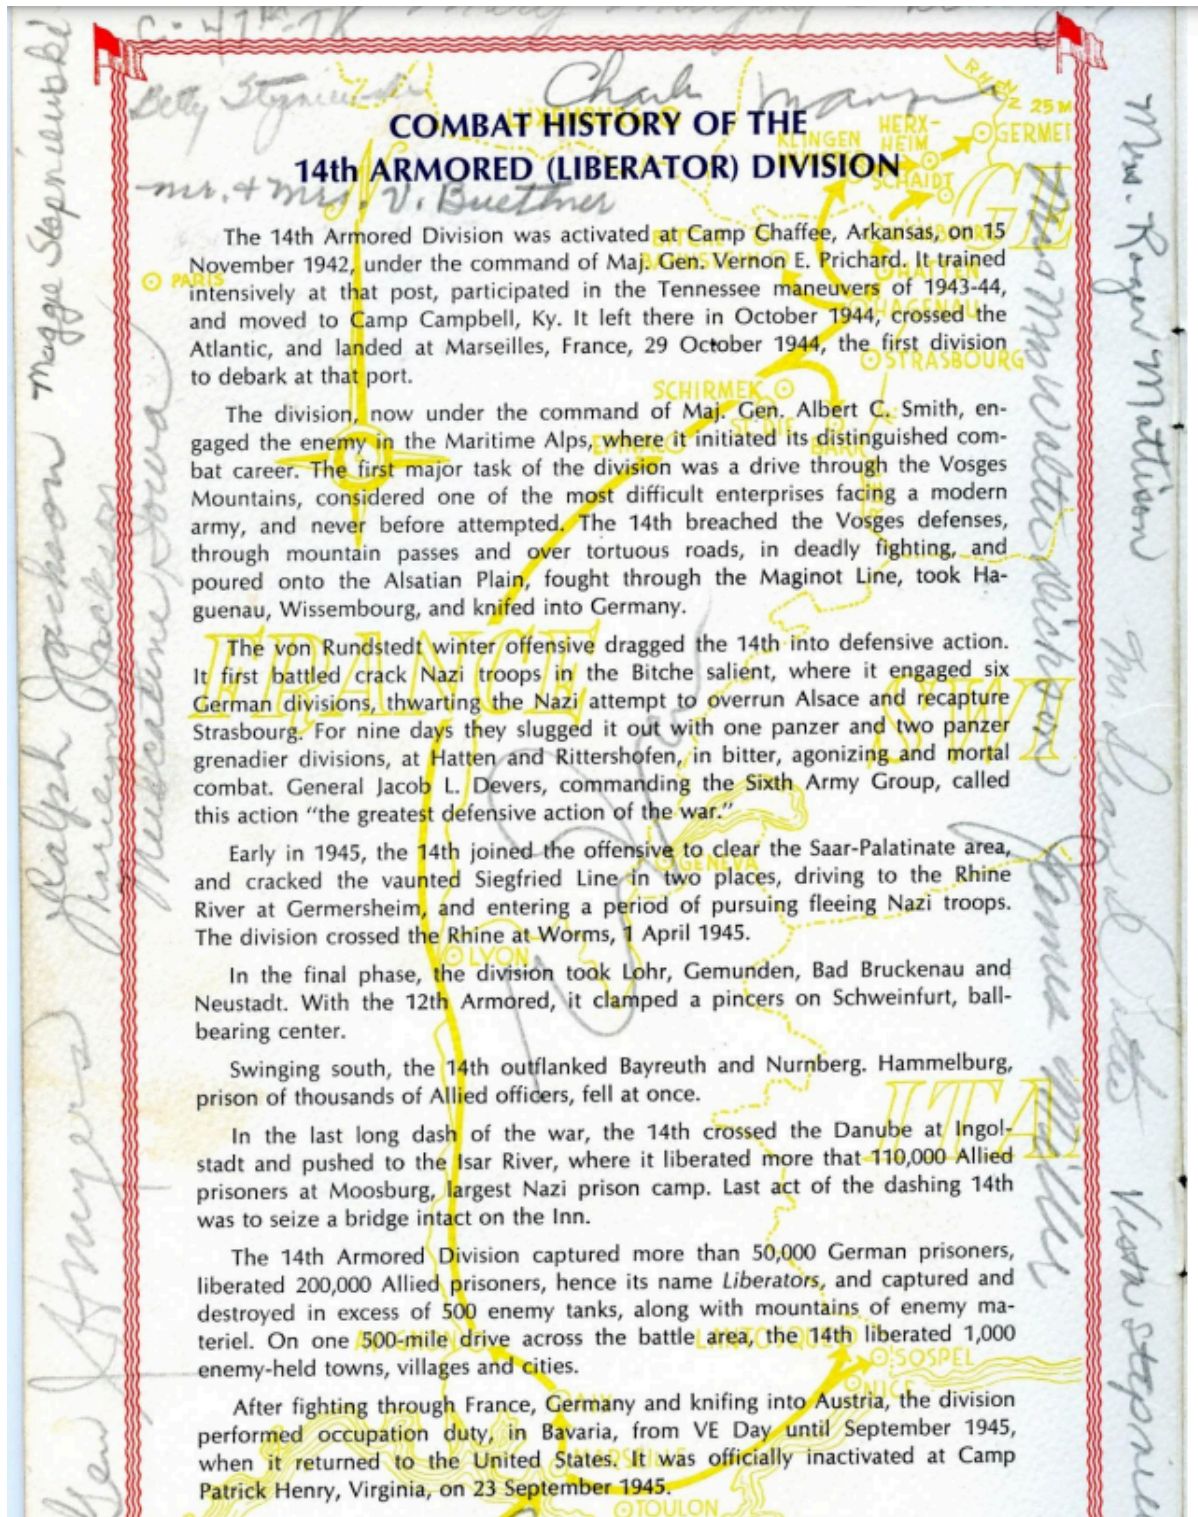 Betty
Charles
COMBAT HISTORY OF THE
14th ARMORED (LIBERATOR) DIVISION
Mr. + Mrs. V. Buettner
The 14th Armored Division was activated at Camp Chaffee, Arkansas, on 15
November 1942, under the command of Maj. Gen. Vernon E. Prichard. It trained
intensively at that post, participated in the Tennessee maneuvers of 1943-44,
and moved to Camp Campbell, Ky. It left there in October 1944, crossed the
Atlantic, and landed at Marseilles, France, 29 October 1944, the first division
to debark at that port.
The division, now under the command of Maj. Gen. Albert C. Smith, en-
gaged the enemy in the Maritime Alps, where it initiated its distinguished com-
bat career. The first major task of the division was a drive through the Vosges
Mountains, considered one of the most difficult enterprises facing a modern
army, and never before attempted. The 14th breached the Vosges defenses,
through mountain passes and over tortuous roads, in deadly fighting, and
poured onto the Alsatian Plain, fought through the Maginot Line, took Ha-
guenau, Wissembourg, and knifed into Germany.
The von Rundstedt winter offensive dragged the 14th into defensive action.
It first battled crack Nazi troops in the Bitche salient, where it engaged six
German divisions, thwarting the Nazi attempt to overrun Alsace and recapture
Strasbourg. For nine days they slugged it out with one panzer and two panzer
grenadier divisions, at Hatten and Rittershofen, in bitter, agonizing and mortal
combat. General Jacob L. Devers, commanding the Sixth Army Group, called
this action "the greatest defensive action of the war."
Early in 1945, the 14th joined the offensive to clear the Saar-Palatinate area,
and cracked the vaunted Siegfried Line in two places, driving to the Rhine
River at Germersheim, and entering a period of pursuing fleeing Nazi troops.
The division crossed the Rhine at Worms, 1 April 1945.
In the final phase, the division took Lohr, Gemunden, Bad Bruckenau and
Neustadt. With the 12th Armored, it clamped a pincers on Schweinfurt, ball-
bearing center.
Swinging south, the 14th outflanked Bayreuth and Nurnberg. Hammelburg,
prison of thousands of Allied officers, fell at once.
In the last long dash of the war, the 14th crossed the Danube at Ingol-
stadt and pushed to the Isar River, where it liberated more that 110,000 Allied
prisoners at Moosburg, largest Nazi prison camp. Last act of the dashing 14th
was to seize a bridge intact on the Inn.
The 14th Armored Division captured more than 50,000 German prisoners,
liberated 200,000 Allied prisoners, hence its name Liberators, and captured and
destroyed in excess of 500 enemy tanks, along with mountains of enemy ma-
teriel. On one 500-mile drive across the battle area, the 14th liberated 1,000
enemy-held towns, villages and cities.
After fighting through France, Germany and knifing into Austria, the division
performed occupation duty, in Bavaria, from VE Day until September 1945,
when it returned to the United States. It was officially inactivated at Camp
Patrick Henry, Virginia, on 23 September 1945.
Ralph Jackson
Muscatine Iowa
Mrs. Roger Mattison
James Miller
25 M
HERX-
HEIM
KLINGEN
SCHAIDT
PARIS
HATTEN
HAGENAU
STRASBOURG
SCHIRMEK
ST. DIE
EPINAL
BARR
FRANCE
GENEVA
LYON
LANTOSQUE
SOSPEL
NICE
AIX
MARSEILLE
TOULON